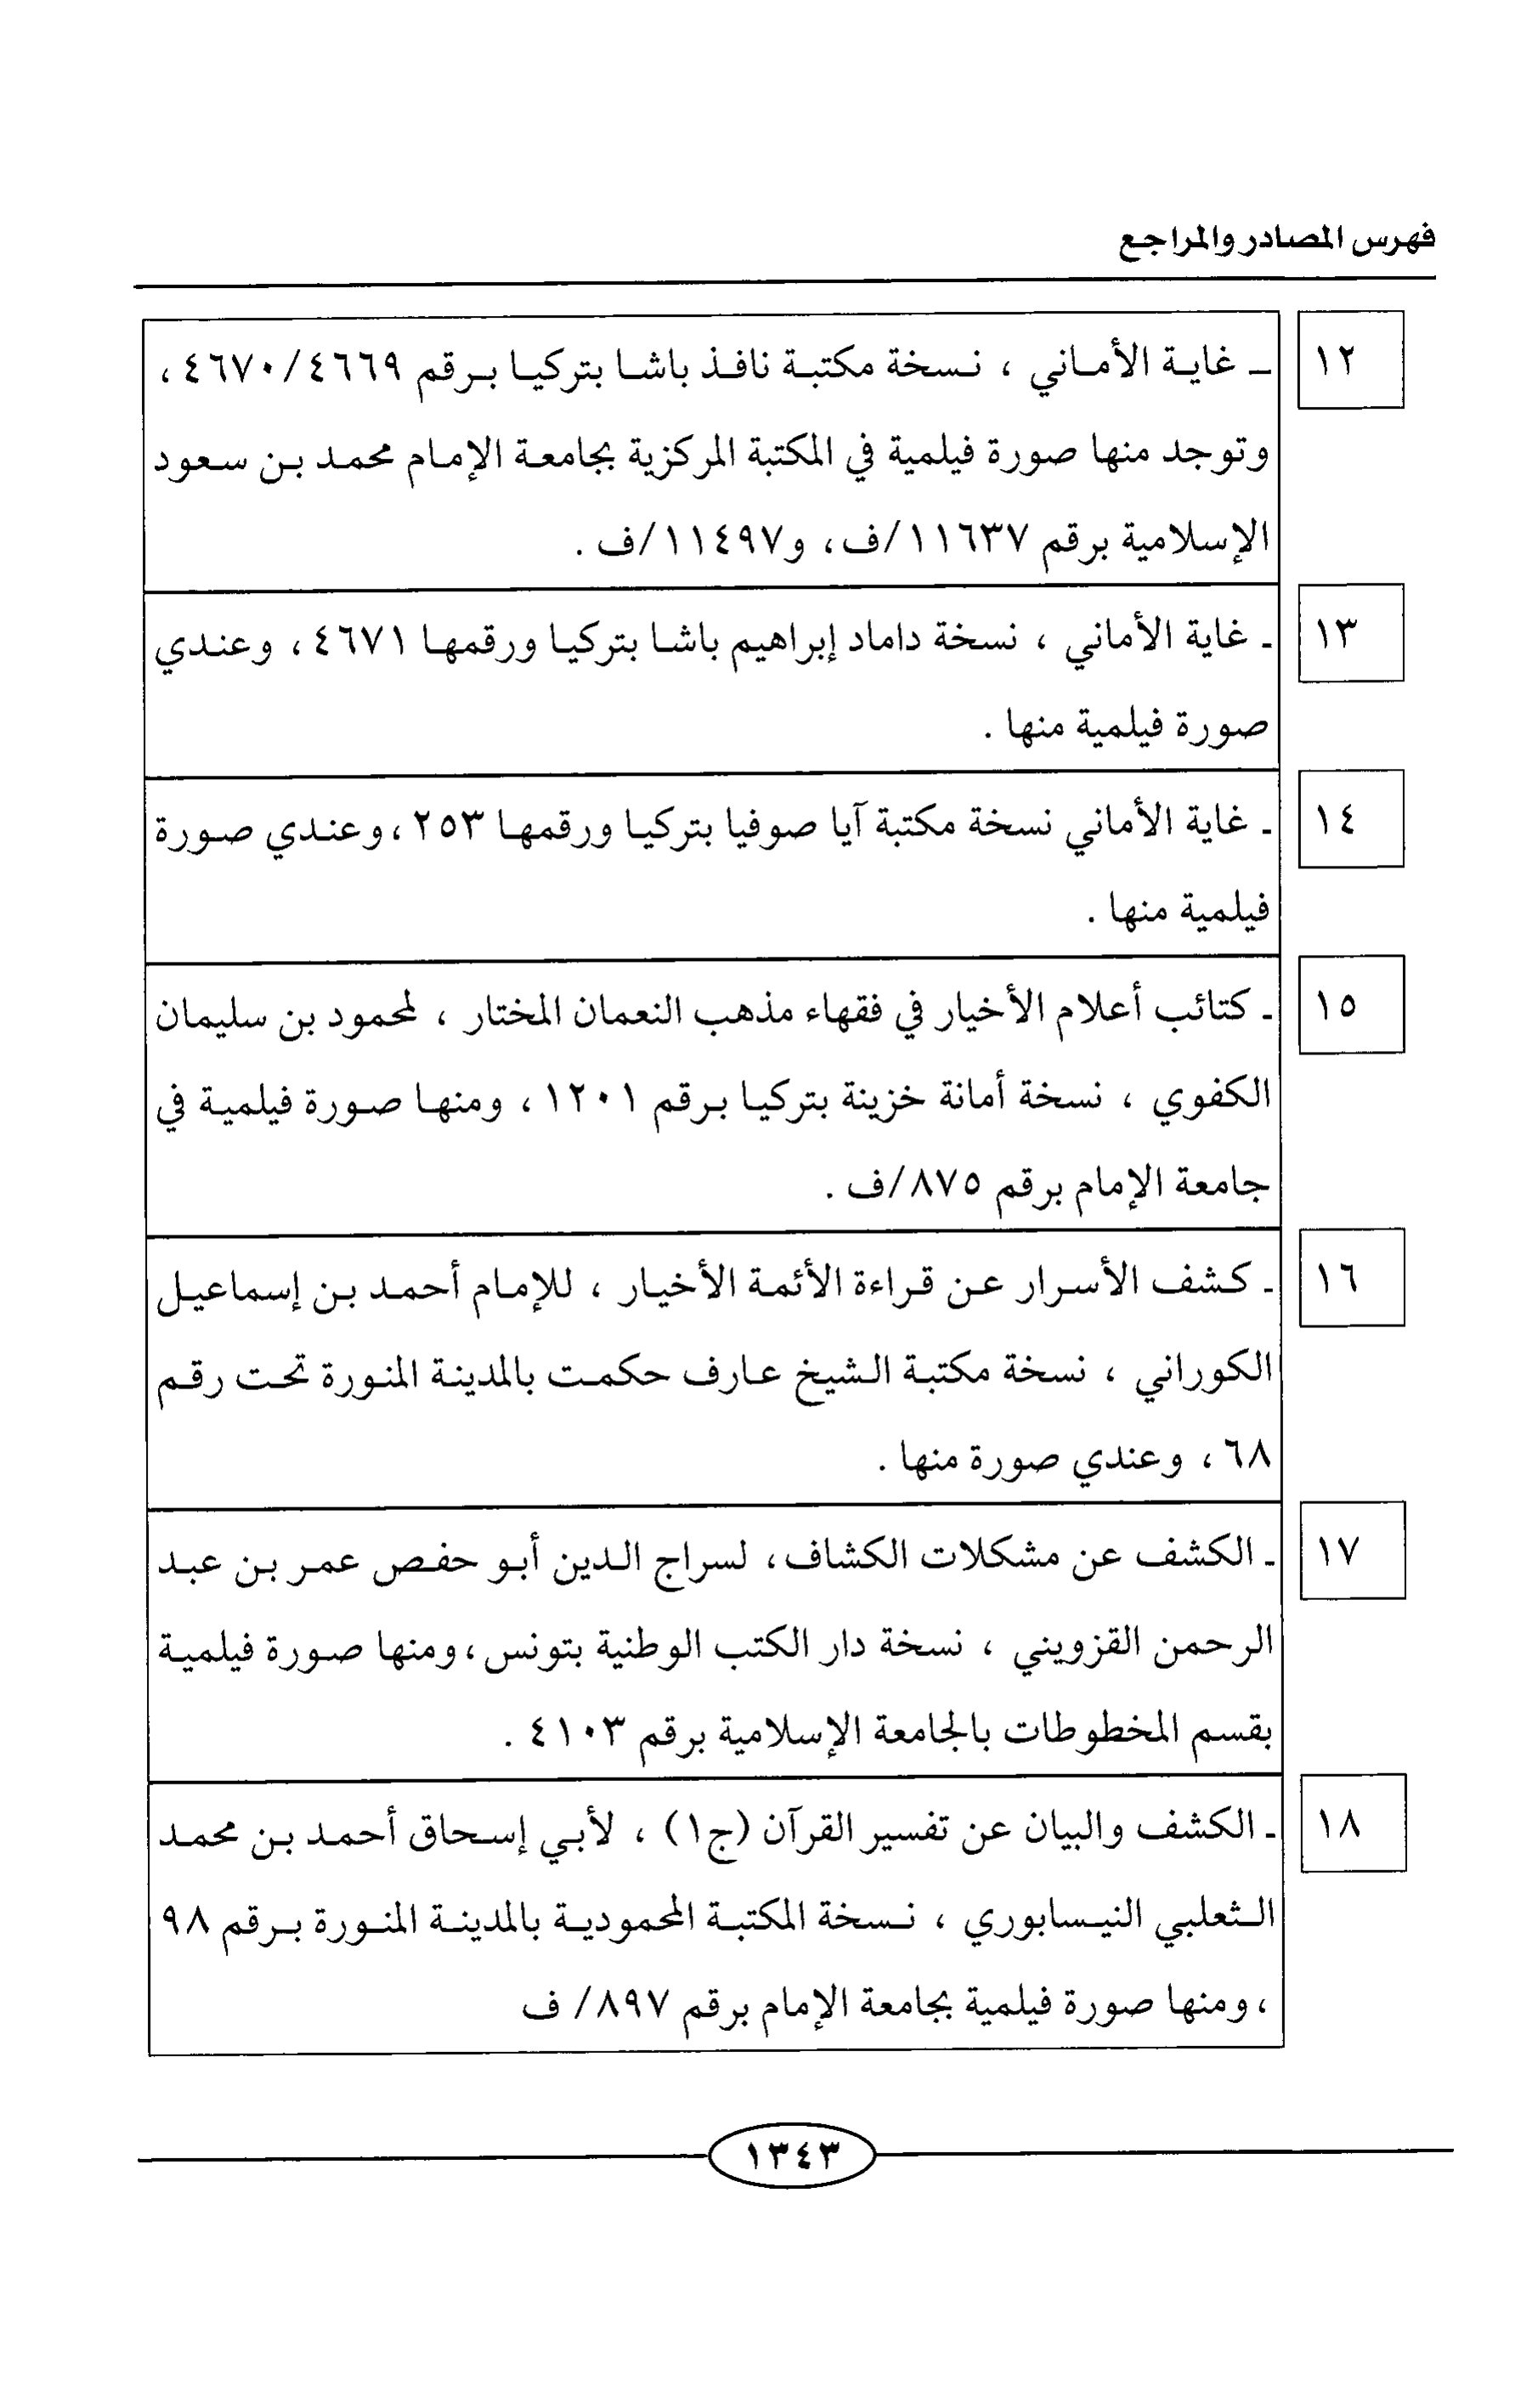 فهرس المصادر والمراجع
١٢
ـ غاية الأماني ، نسخة مكتبة نافذ باشا بتركيا برقم ٤٦٧٠/٤٦٦٩ ،
وتوجد منها صورة فيلمية في المكتبة المركزية بجامعة الإمام محمد بن سعود
الإسلامية برقم ١١٦٣٧/ف، و١١٤٩٧/ف .
١٣
ـ غاية الأماني ، نسخة داماد إبراهيم باشا بتركيا ورقمها ٤٦٧١ ، وعندي
صورة فيلمية منها .
١٤
ـ غاية الأماني نسخة مكتبة آيا صوفيا بتركيا ورقمها ٢٥٣ ،وعندي صورة
فيلمية منها .
١٥
ـ كتائب أعلام الأخيار في فقهاء مذهب النعمان المختار ، لمحمود بن سليمان
الكفوي ، نسخة أمانة خزينة بتركيا برقم ١٢٠١ ، ومنها صورة فيلمية في
جامعة الإمام برقم ٨٧٥/ف .
١٦
ـ كشف الأسرار عن قراءة الأئمة الأخيار ، للإمام أحمد بن إسماعيل
الكوراني ، نسخة مكتبة الشيخ عارف حكمت بالمدينة المنورة تحت رقم
٦٨ ، وعندي صورة منها .
١٧
ـ الكشف عن مشكلات الكشاف، لسراج الدين أبو حفص عمر بن عبد
الرحمن القزويني ، نسخة دار الكتب الوطنية بتونس ،ومنها صورة فيلمية
بقسم المخطوطات بالجامعة الإسلامية برقم ٤١٠٣ .
١٨
ـ الكشف والبيان عن تفسير القرآن (ج١) ، لأبي إسحاق أحمد بن محمد
الثعلبي النيسابوري ، نسخة المكتبة المحمودية بالمدينة المنورة برقم ٩٨
،ومنها صورة فيلمية بجامعة الإمام برقم ٨٩٧/ ف
١٣٤٣